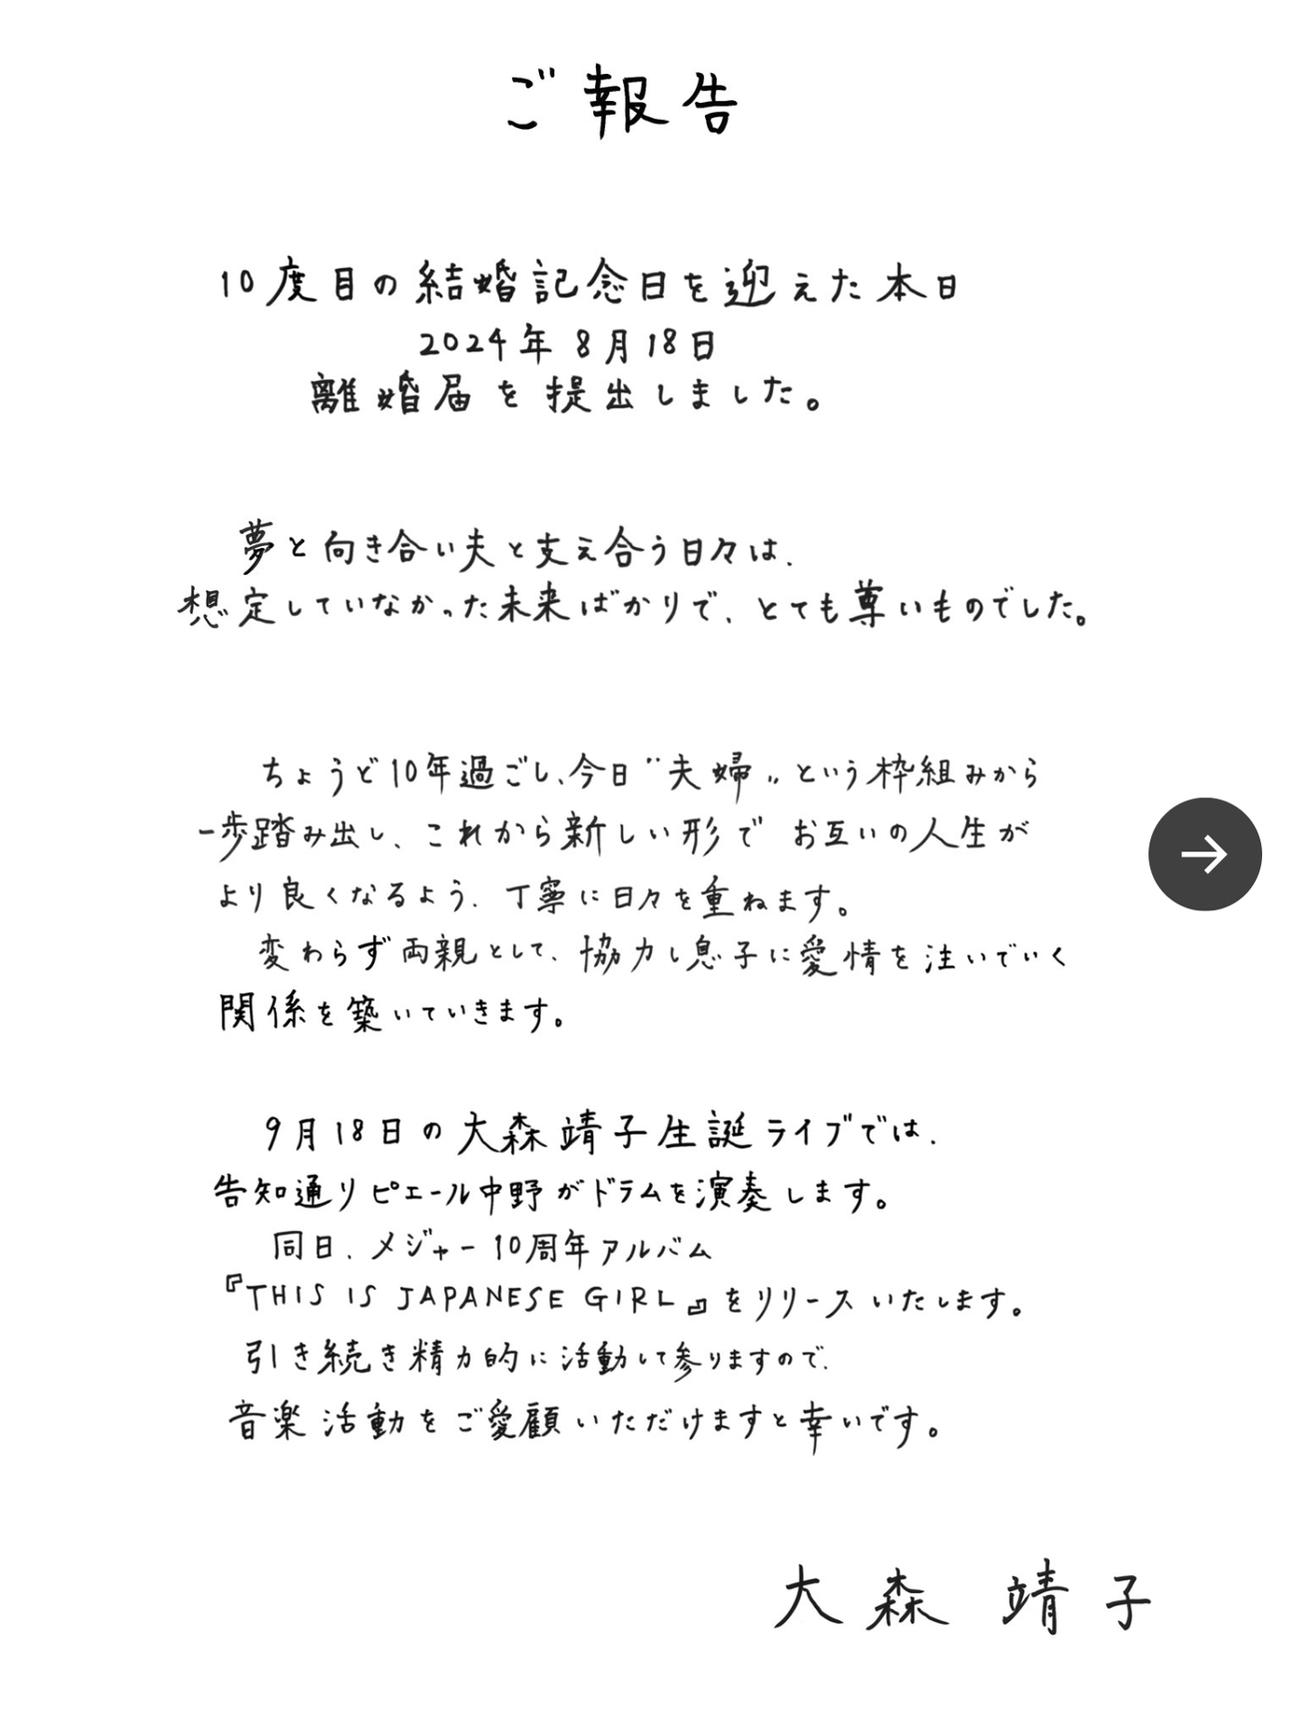 ご報告
10度目の結婚記念日を迎えた本日
2024年8月18日
離婚届を提出しました。
夢と向き合い夫と支え合う日々は、
想定していなかった未来ばかりで、とても尊いものでした。
ちょうど10年過ごし、今日〝夫婦〟という枠組みから
一歩踏み出し、これから新しい形で お互いの人生が
より良くなるよう、丁寧に日々を重ねます。
変わらず両親として、協力し息子に愛情を注いでいく
関係を築いていきます。
9月18日の大森靖子生誕ライブでは、
告知通りピエール中野がドラムを演奏します。
同日、メジャー10周年アルバム
『THIS IS JAPANESE GIRL』をリリースいたします。
引き続き精力的に活動して参りますので、
音楽活動をご愛顧いただけますと幸いです。
大森 靖子